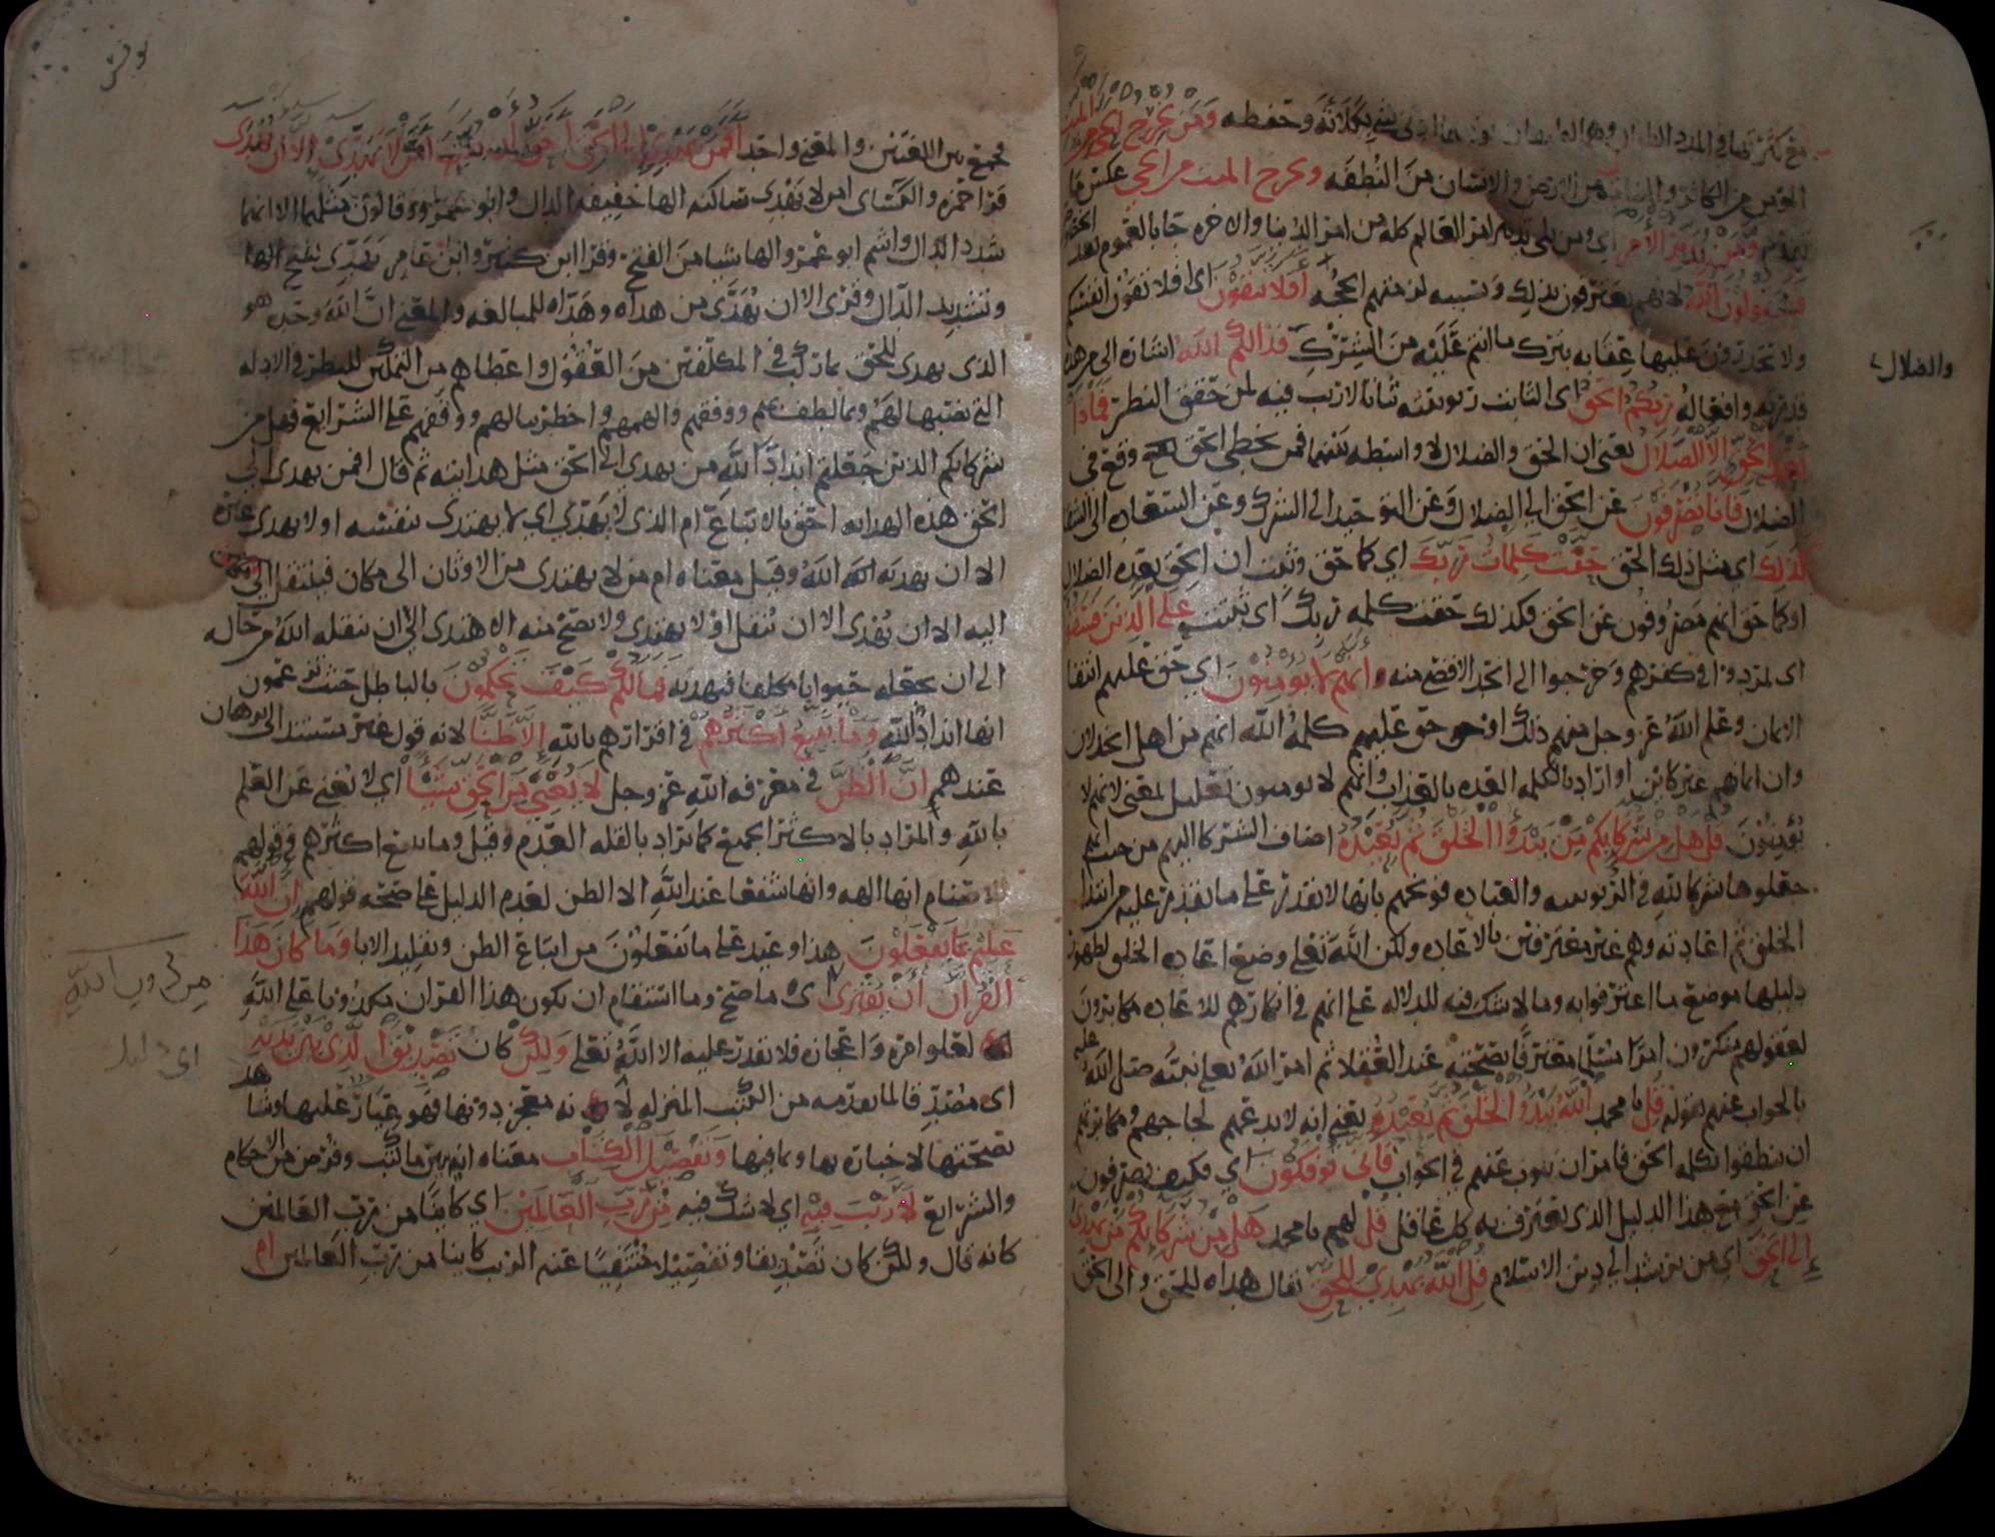 مع كثرتها في المدد الطوال وهم الضعفاء يؤذيهما ادنى شي بكلاته وحفظه ومن يخرج الحي من الميت
المؤمن من الكافر والنبات من الارض والانسان من النطفه ويخرج الميت من الحي عكس ما
تقدم ومن يدبر الامر اي ومن يلي تدبير امر العالم كله من امر الدنيا والاخره جا بالعموم بعد الخصوص
فسيقولون الله لانهم يعترفون بذلك وبسببه لزمتهم الحجه افلا تتقون اي افلا تقون انفسكم
ولا تحذرون عليها عقابه بترك ما انتم عليه من الشرك فذلكم الله اشارة الى من هذه
قدرته وافعاله ربكم الحق اي الثابت ربوبيته ثباتا لا ريب فيه لمن حقق النظر فماذا
بعد الحق الا الضلال يعني ان الحق والضلال لا واسطه بينهما فمن يخطي الحق وقع في
الضلال فانا تصرفون عن الحق الى الضلال وعن التوحيد الى الشرك وعن السعاده الى الشقا
كذلك اي مثل ذلك الحق حقت كلمات ربك اي كما حق وثبت ان الحق بعده الضلال
او كما حق انهم مصروفون عن الحق فكذلك حقت كلمه ربك اي ثبتت على الذين فسقوا
اي تمردوا في كفرهم وخرجوا الى الحد الاقصى منه وانهم لا يومنون اي حق عليهم انتفا
الايمان وعلم الله عز وجل منهم ذلك او حق عليهم كلمة الله انهم من اهل الخذلان
وان ايمانهم غير كاين او اراد بالكلمه العده بالعذاب وانهم لا يومنون تعليل لمعنى لانهم لا
يومنون قل هل من شركايكم من يبدوا الخلق ثم يعيده اضاف الشركا اليهم من حيث انهم
جعلوها شركا لله في الربوبيه والعباده فوبخهم بانها لا تقدر على ما يقدر عليه من ابتدا
الخلق ثم اعادته وهم غير معترفين بالاعاده ولكن الله تعلى وضع اعاده الخلق لظهور
دليلها موضع ما اعترفوا به وما لا شك فيه للدلاله على انهم في انكارهم للاعاده مكابرون
لعقولهم منكرون امرا مسلما معترفا بصحته عند العقلا ثم امر الله تعلى نبيه صلى الله عليه
بالجواب عنهم بقوله قل يا محمد الله يبدوا الخلق ثم يعيده يعني انه لا يدعهم لجاجهم ومكابرتهم
ان ينطقوا بكلمه الحق فامر ان ينوب عنهم في الجواب فانى توفكون اي فكيف تصرفون
عن الحق مع هذا الدليل الذي يعترف به كل عاقل قل لهم يا محمد هل من شركايكم من يهدي
الى الحق اي من يرشد الى دين الاسلام قل الله يهدي للحق يقال هداه للحق والى الحق
والضلال
فجمع بين اللغتين والمعنى واحد افمن يهدي الى الحق احق ان يتبع امن لا يهدي الا ان يهدى
قرا حمزه والكساي امن لا يهدي ساكنه الها خفيفه الدال وابو عمرو وقالون مثلهما الا انهما
شددا الدال واشم ابو عمرو الها شيا من الفتح وقرا ابن كثير وابن عامر يهدي بفتح الها
وتشديد الدال وقرى الا ان يهدى من هداه وهداه للمبالغه والمعنى ان الله وحده هو
الذي يهدي للحق بما ركب في المكلفين من العقول واعطاهم من التمكن للنظر في الادله
التي نصبها لهم وبما لطف بهم ووفقهم والهمهم واخطر ببالهم ووقفهم على الشرايع فهل من
شركايكم الذين جعلتم اندادا لله من يهدي الى الحق مثل هدايته ثم قال افمن يهدي الى
الحق هذه الهدايه احق بالاتباع ام الذي لا يهدي اي لا يهتدي بنفسه او لا يهدي غيره
الا ان يهديه الله وقيل معناه ام من لا يهتدي من الاوثان الى مكان فينتقل
اليه الا ان يهدى الا ان ينقل او لا يهتدي ولا يصح منه الاهتدى الا ان ينقله الله من حاله
الى ان يجعله حيوانا مكلفا فيهديه فما لكم كيف تحكمون بالباطل حيث تزعمون
انها انداد الله وما يتبع اكثرهم في اقرارهم بالله الا ظنا لانه قول غير مستند الى برهان
عندهم ان الظن في معرفه الله عز وجل لا يغني من الحق شيا اي لا يغني عن العلم
بالله والمراد بالاكثر الجميع كما يراد بالقله العدم وقيل وما يتبع اكثرهم في قولهم
للاصنام انها الهه وانها شفعا عند الله الا الظن لعدم الدليل على صحه قولهم ان الله
عليم بما يفعلون هذا وعيد على ما يفعلون من اتباع الظن وتقليد الابا وما كان هذا
القران ان يفترى اي ما صح وما استقام ان يكون هذا القران مكذوبا على الله
لعلو امره واعجازه فلا يقدر عليه الا الله تعلى ولكن كان تصديق الذي بين يديه
اي مصدقا لما تقدمه من الكتب المنزله لانه معجز دونها فهو عيار عليها وشاهد
بصحتها لاخباره بها وبما فيها وتفصيل الكتاب معناه انه يبين ما كتب وفرض من الاحكام
والشرايع لا ريب فيه اي لا شك فيه من رب العالمين اي كاينا من رب العالمين
كانه قال ولكن كان تصديقا وتفصيلا منتفيا عنه الريب كاينا من رب العالمين ام
من دون الله